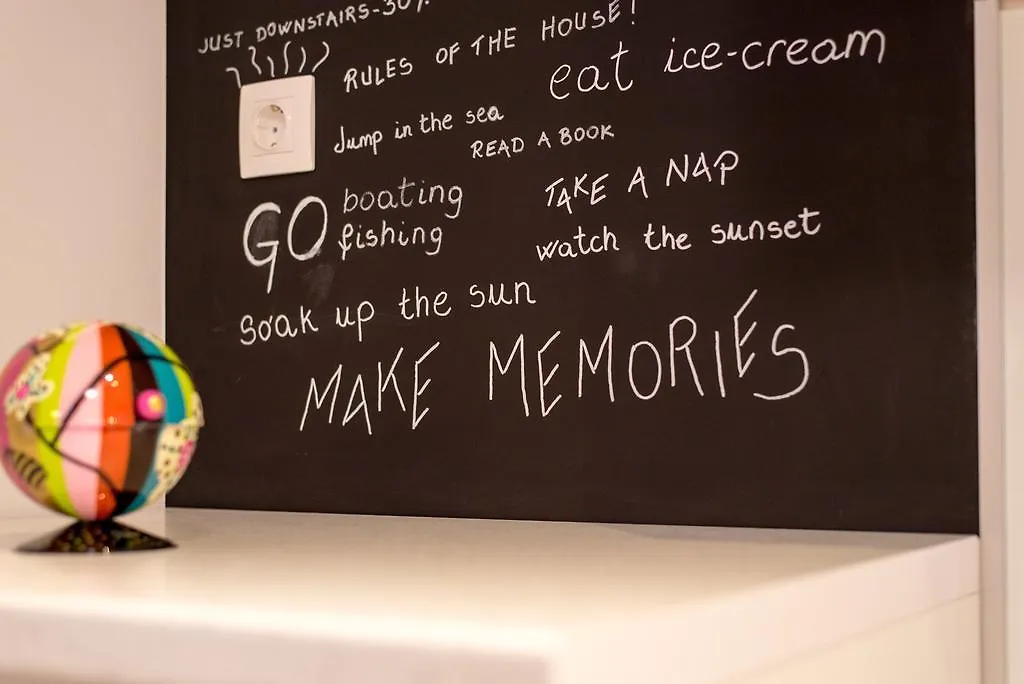 JUST DOWNSTAIRS-30%
RULES OF THE HOUSE!
eat ice-cream
Jump in the sea
READ A BOOK
GO boating
fishing
TAKE A NAP
watch the sunset
Soak up the sun
MAKE MEMORIES